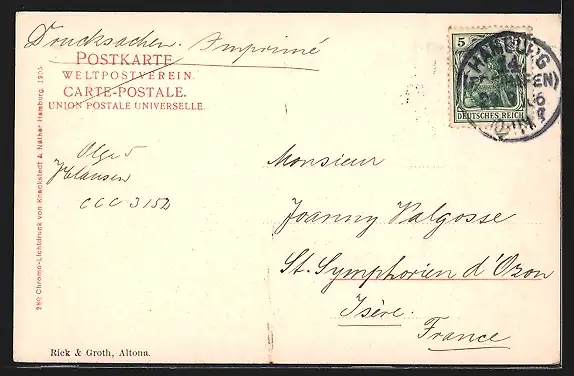 Drucksachen. Imprimé
POSTKARTE
WELTPOSTVEREIN.
CARTE-POSTALE.
UNION POSTALE UNIVERSELLE.
5
DEUTSCHES REICH
HAMBURG
14
Monsieur
Joanny Valgosse
St. Symphorien d'Ozon
Isère.
France
CCC 3152
280 Chromo-Lichtdruck von Knackstedt & Näther Hamburg. 1905
Rick & Groth, Altona.